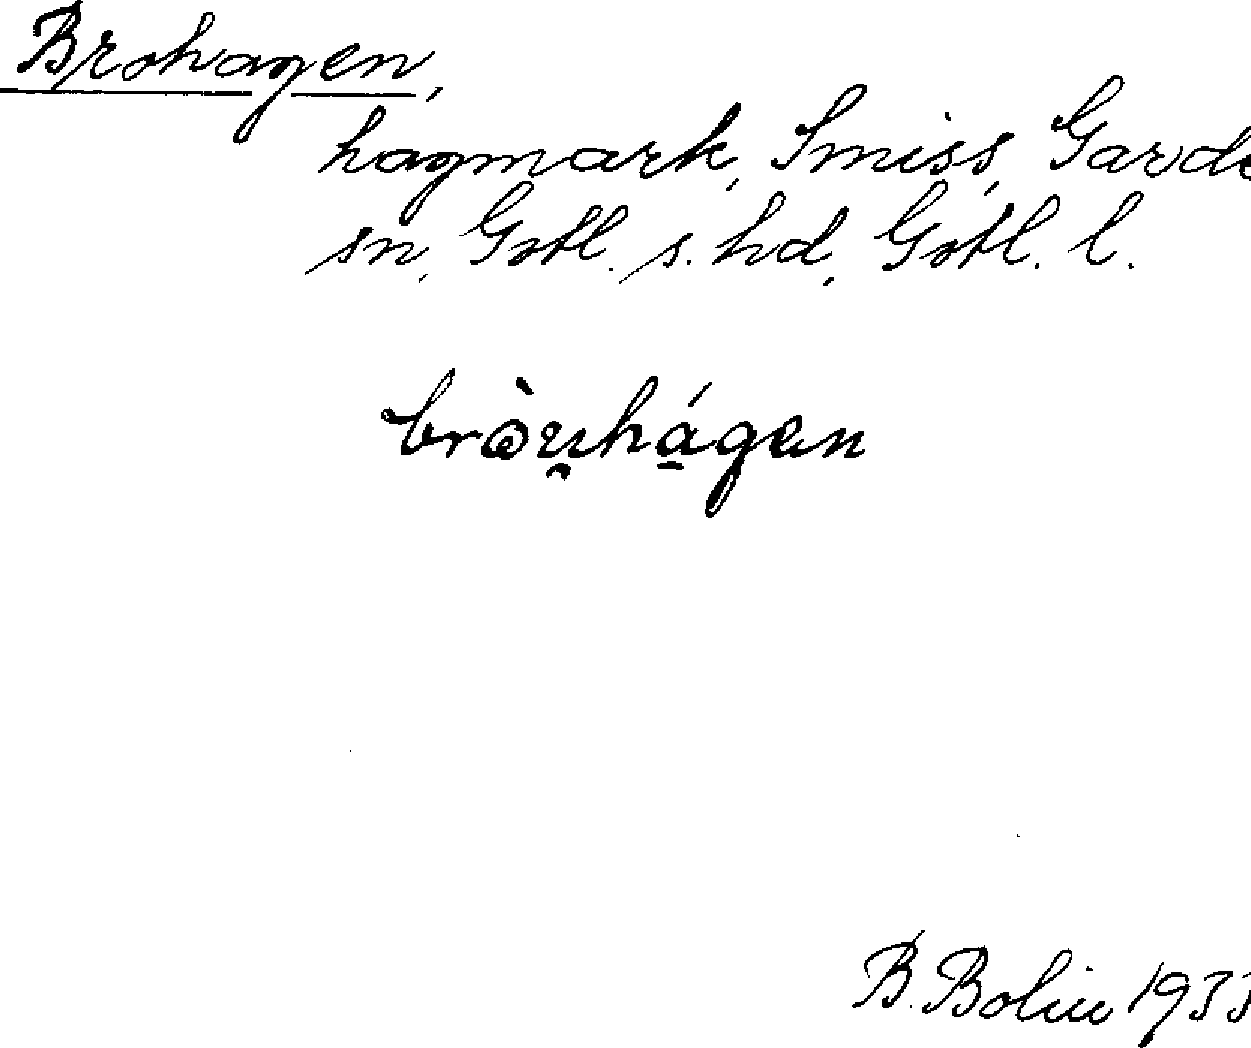 Brohagen,
hagmark, Smiss, Garde
sn, Gotl. s. hd, Gotl. l.
bròu̯há̱gen
B. Bolin 1933